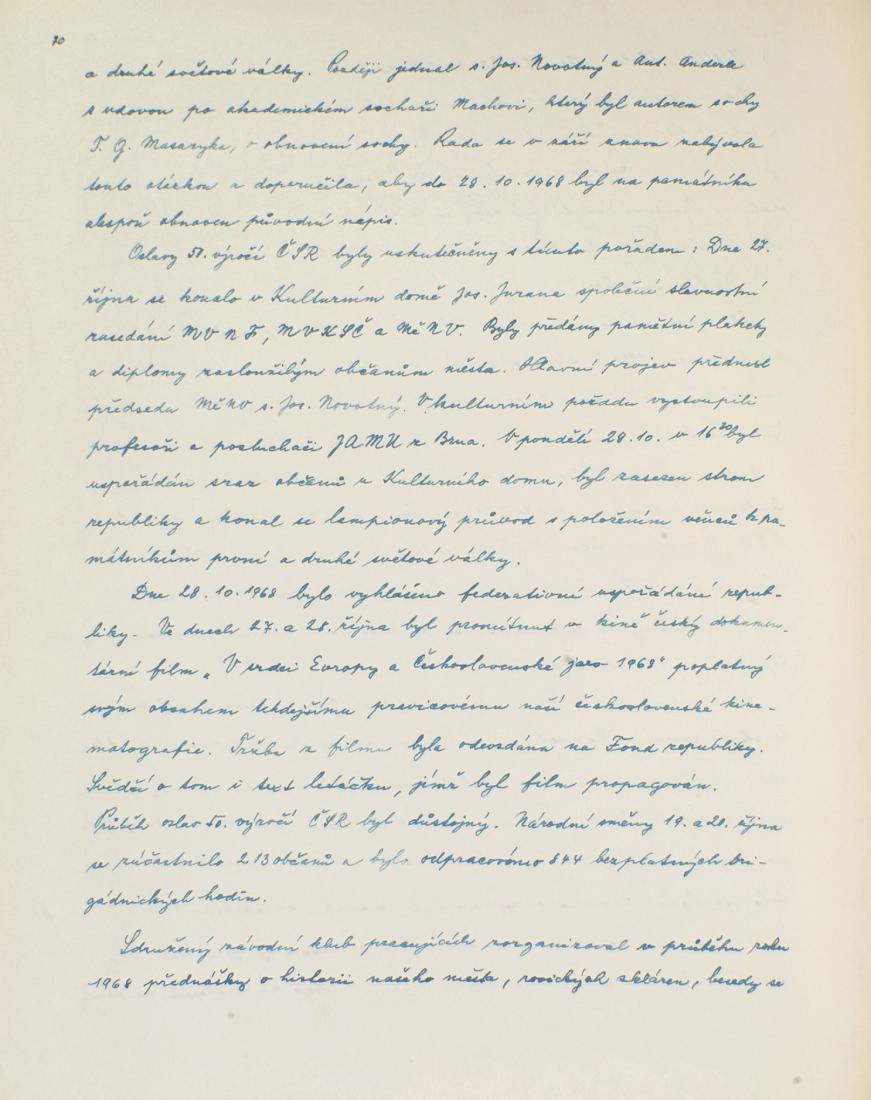 70
a druhé světové války. Později jednal s. Jos. Novotný a Ant. Anderle
s vdovou po akademickém sochaři Machovi, který byl autorem sochy
T. G. Masaryka, o obnovení sochy. Rada se v září znova zabývala
touto otázkou a doporučila, aby do 28. 10. 1968 byl na památníku
alespoň obnoven původní nápis.
Oslavy 50. výročí ČSR byly uskutečněny s tímto pořadem: Dne 27.
října se konalo v Kulturním domě Jos. Jurana společné slavnostní
zasedání MV NF, MV KSČ a MěNV. Byly předány pamětní plakety
a diplomy zasloužilým občanům města. Hlavní projev přednesl
předseda MěNV s. Jos. Novotný. V kulturním pořadu vystoupili
profesoři a posluchači JAMU z Brna. V pondělí 28. 10. v 16³⁰ byl
uspořádán sraz občanů u Kulturního domu, byl zasazen strom
republiky a konal se lampionový průvod s položením věnců k pa-
mátníkům první a druhé světové války.
Dne 28. 10. 1968 bylo vyhlášeno federativní uspořádání repub-
liky. Ve dnech 27. a 28. října byl promítnut v kině český dokumen-
tární film „V srdci Evropy a Československé jaro 1968" poplatný
svým obsahem tehdejšímu pravicovému naší československé kine-
matografie. Tržba z filmu byla odevzdána na Fond republiky.
Svědčí o tom i text letáčku, jímž byl film propagován.
Průběh oslav 50. výročí ČSR byl důstojný. Národní směny 19. a 20. října
se zúčastnilo 213 občanů a bylo odpracováno 844 bezplatných bri-
gádnických hodin.
Sdružený závodní klub pracujících zorganizoval v průběhu roku
1968 přednášky o historii našeho města, rosických skláren, besedy se